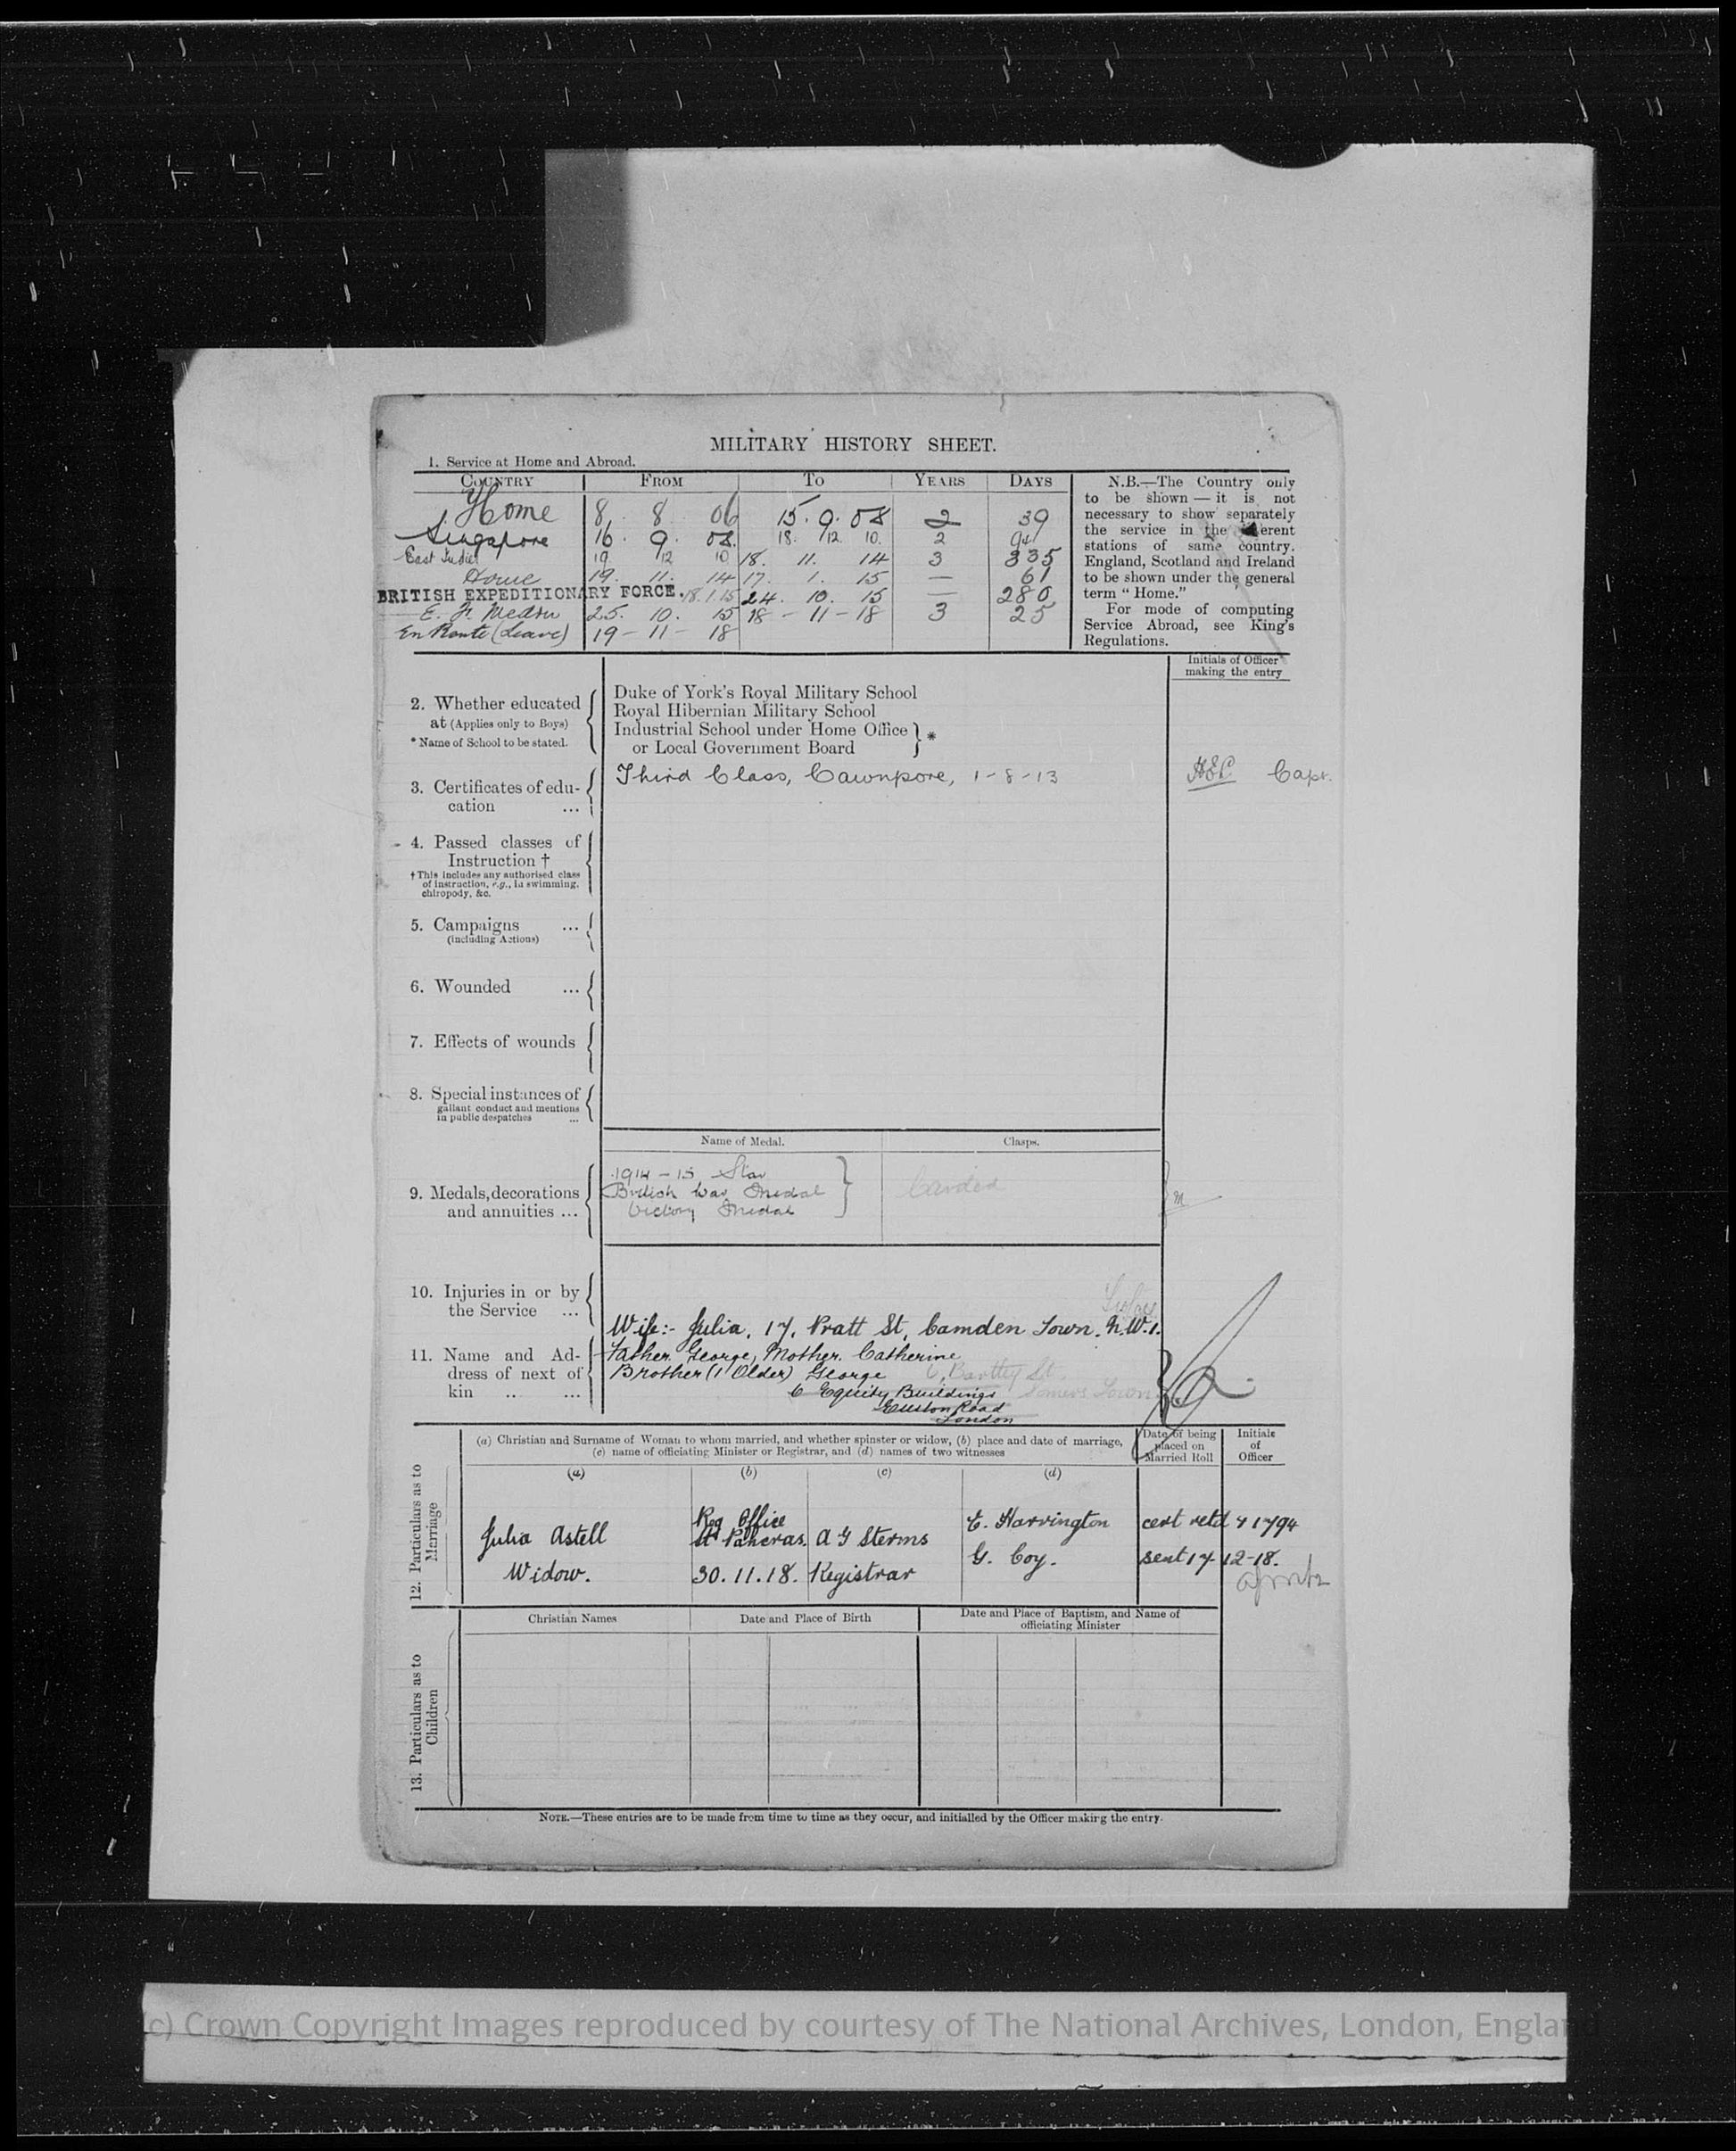 MILITARY HISTORY SHEET.
1. Service at Home and Abroad.
COUNTRY FROM TO YEARS DAYS
Home 8 8 06 15. 9. 08 2 39
Singapore 16. 9. 08. 18. 12. 10. 2 94
East Indies 19 12 10 18. 11. 14 3 335
Home 19. 11. 14 17. 1. 15 — 61
BRITISH EXPEDITIONARY FORCE. 18.1.15 24. 10. 15 — 280
E. F. Medtn 25. 10. 15 18 - 11 - 18 3 25
En Route (Leave) 19 - 11 - 18
N.B.—The Country only
to be shown — it is not
necessary to show separately
the service in the different
stations of same country.
England, Scotland and Ireland
to be shown under the general
term “ Home.”
For mode of computing
Service Abroad, see King's
Regulations.
Initials of Officer
making the entry
2. Whether educated
at (Applies only to Boys)
* Name of School to be stated.
Duke of York's Royal Military School
Royal Hibernian Military School
Industrial School under Home Office
or Local Government Board } *
3. Certificates of edu-
cation ...
Third Class, Cawnpore, 1-8-13 Capt.
4. Passed classes of
Instruction †
† This includes any authorised class
of instruction, e.g., in swimming,
chiropody, &c.
5. Campaigns ...
(including Actions)
6. Wounded ...
7. Effects of wounds
8. Special instances of
gallant conduct and mentions
in public despatches ...
Name of Medal. Clasps.
9. Medals, decorations
and annuities ...
1914-15 Star
British War Medal
Victory Medal
Carded
10. Injuries in or by
the Service ...
11. Name and Ad-
dress of next of
kin .. ...
Wife:- Julia, 17, Pratt St, Camden Town. N.W.1.
Father. George, Mother. Catherine
Brother (1 Older) George
6, St.
6 Equity Buildings Somers Town
Euston Road
London
12. Particulars as to
Marriage
(a) Christian and Surname of Woman to whom married, and whether spinster or widow, (b) place and date of marriage,
(c) name of officiating Minister or Registrar, and (d) names of two witnesses
Date of being
placed on
Married Roll
Initials
of
Officer
(a) (b) (c) (d)
Julia Astell
Widow.
Reg Office
St Pancras.
30.11.18.
A G Sterms
Registrar
E. Harrington
G. Coy.
cert retd 71794
sent 17-12-18.
13. Particulars as to
Children
Christian Names
Date and Place of Birth
Date and Place of Baptism, and Name of
officiating Minister
NOTE.—These entries are to be made from time to time as they occur, and initialled by the Officer making the entry.
(c) Crown Copyright Images reproduced by courtesy of The National Archives, London, England